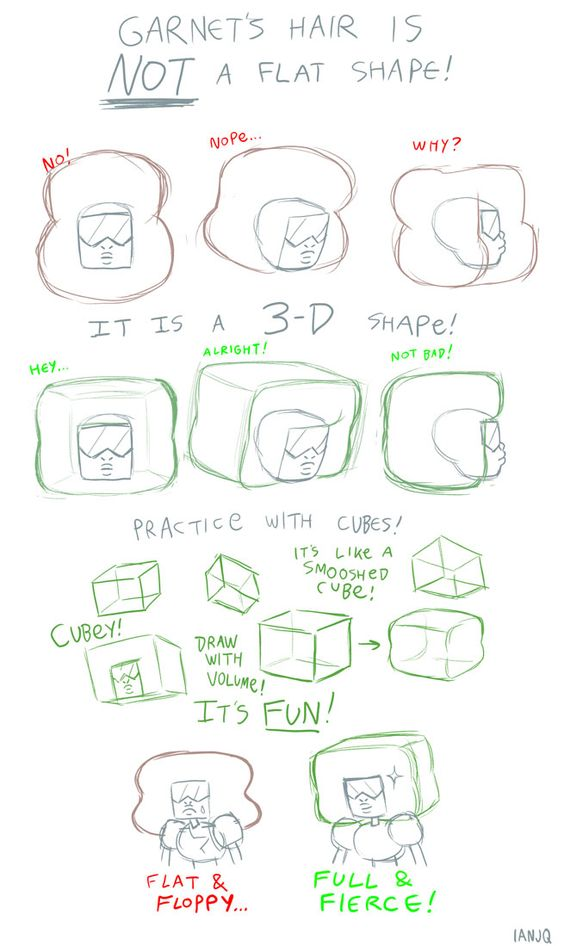 GARNET'S HAIR IS
NOT A FLAT SHAPE!
NO!
NOPE...
WHY?
IT IS A 3-D SHAPE!
HEY...
ALRIGHT!
NOT BAD!
PRACTICE WITH CUBES!
IT'S LIKE A
SMOOSHED
CUBE!
CUBEY!
DRAW
WITH
VOLUME!
IT'S FUN!
FLAT &
FLOPPY...
FULL &
FIERCE!
IANJQ